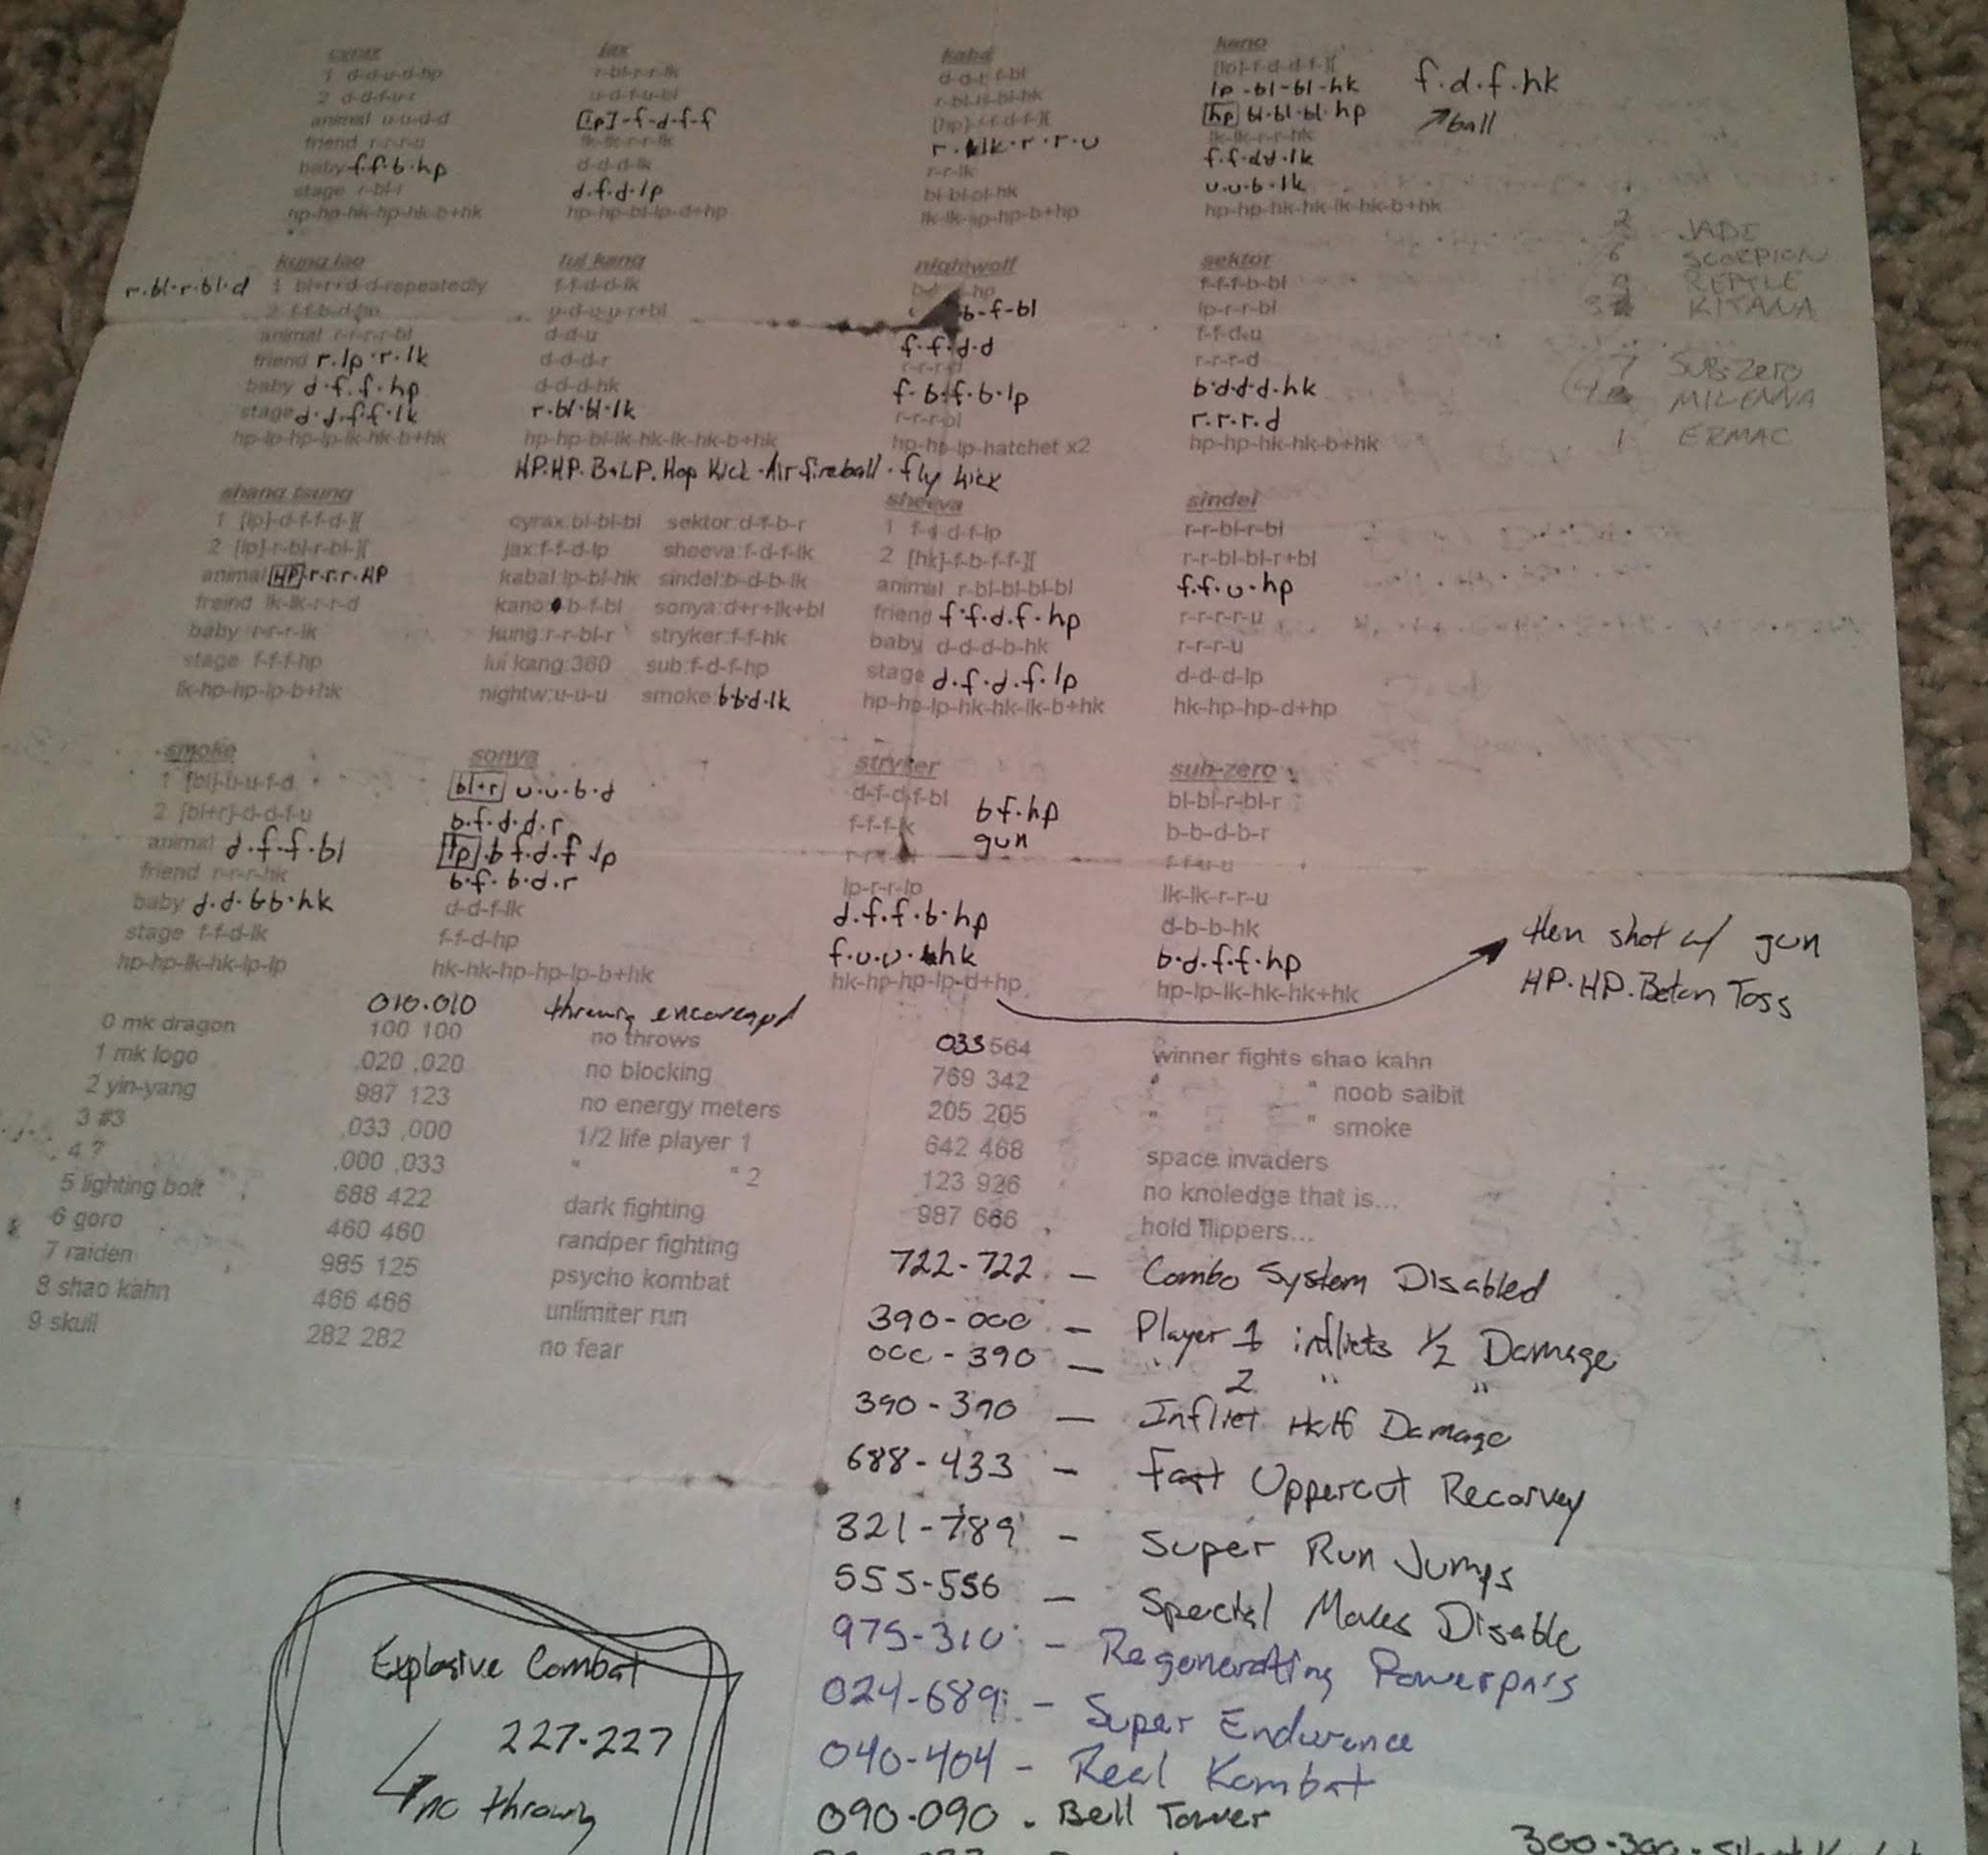 cyrax
1 d-d-u-d-hp
2 d-d-f-u-r
animal u-u-d-d
friend r-r-r-u
baby f·f·b·hp
stage r-bl-r
hp-hp-hk-hp-hk-b+hk
jax
r-bl-r-r-lk
u-d-f-u-bl
[lp]-f-d-f-f
lk-lk-r-r-lk
d-d-d-lk
d·f·d·lp
hp-hp-bl-lp-d+hp
kabal
r·lk·r·r·u
r-r-lk
bl-bl-bl-hk
lk-lk-hp-hp-b+hp
kano
[lp]-f-d-d-f-][
lp-bl-bl-hk
[hp] bl-bl-bl-hp
lk-lk-r-r-hk
f·f·d·d·lk
u·u·b·lk
hp-hp-hk-hk-lk-hk-b+hk
f·d·f·hk
ball
2 JADE
6 SCORPION
9 REPTILE
KITANA
7 SUB-ZERO
MILENNA
1 ERMAC
r·bl·r·bl·d
kung lao
1 bl+r+d-d-repeatedly
2 f-f-b-d-hp
animal r-r-r-r-bl
friend r·lp·r·lk
baby d·f·f·hp
stage d·d·f·f·lk
hp-lp-hp-lp-lk-hk-b+hk
lui kang
f-f-d-d-lk
u-d-u-u-r+bl
d-d-u
d-d-d-r
d-d-d-hk
r·bl·bl·lk
hp-hp-bl-lk-hk-lk-hk-b+hk
HP.HP.B+LP.Hop Kick·Air fireball·fly kick
nightwolf
b-f-bl
f·f·d·d
r-r-r-d
f·b·f·b·lp
r-r-r-bl
hp-hp-lp-hatchet x2
sektor
f-f-f-b-bl
lp-r-r-bl
f-f-d-u
r-r-r-d
b·d·d·d·hk
r·r·r·d
hp-hp-hk-hk-b+hk
shang tsung
1 [lp]-d-f-f-d-][
2 [lp]-r-bl-r-bl-][
animal [HP]·r·r·r·HP
freind lk-lk-r-r-d
baby r-r-r-lk
stage f-f-f-hp
lk-hp-hp-lp-b+hk
cyrax:bl-bl-bl sektor:d-f-b-r
jax:f-f-d-lp sheeva:f-d-f-lk
kabal:lp-bl-hk sindel:b-d-b-lk
kano: b-f-bl sonya:d+r+lk+bl
kung:r-r-bl-r stryker:f-f-hk
lui kang:360 sub:f-d-f-hp
nightw:u-u-u smoke:b·b·d·lk
sheeva
1 f-d-d-f-lp
2 [hk]-f-b-f-f-][
animal r-bl-bl-bl-bl
friend f·f·d·f·hp
baby d-d-d-b-hk
stage d·f·d·f·lp
hp-hp-lp-hk-hk-lk-b+hk
sindel
r-r-bl-r-bl
r-r-bl-bl-r+bl
f·f·u·hp
r-r-r-r-u
r-r-r-u
d-d-d-lp
hk-hp-hp-d+hp
smoke
1 [bl]-u-u-f-d
2 [bl+r]-d-d-f-u
animal d·f·f·bl
friend r-r-r-hk
baby d·d·b·b·hk
stage f-f-d-lk
hp-hp-lk-hk-lp-lp
sonya
[bl+r] u·u·b·d
b·f·d·d·r
[lp]·b·f·d·f·lp
b·f·b·d·r
d-d-f-lk
f-f-d-hp
hk-hk-hp-hp-lp-b+hk
stryker
d-f-d-f-bl
f-f-f-lk
lp-r-r-lp
d·f·f·b·hp
f·u·u·hk
hk-hp-hp-lp-d+hp
b·f·hp
gun
sub-zero
bl-bl-r-bl-r
b-b-d-b-r
f-f-u-u
lk-lk-r-r-u
d-b-b-hk
b·d·f·f·hp
hp-lp-lk-hk-hk+hk
then shot w/ gun
HP·HP·Beton Toss
0 mk dragon
1 mk logo
2 yin-yang
3 #3
4 ?
5 lighting bolt
6 goro
7 raiden
8 shao kahn
9 skull
010·010 throwing encouraged
100 100 no throws
,020 ,020 no blocking
987 123 no energy meters
,033 ,000 1/2 life player 1
,000 ,033 " " 2
688 422 dark fighting
460 460 randper fighting
985 125 psycho kombat
466 466 unlimiter run
282 282 no fear
033 564 winner fights shao kahn
769 342 " " noob saibit
205 205 " " smoke
642 468 space invaders
123 926 no knoledge that is...
987 666 hold flippers...
722-722 - Combo System Disabled
390-000 - Player 1 inflicts 1/2 Damage
000-390 - " 2 " "
390-390 - Inflict Half Damage
688-433 - Fast Uppercut Recorvey
321-789 - Super Run Jumps
555-556 - Special Moves Disable
975-310 - Regenerating Powerbars
024-689 - Super Endurance
040-404 - Real Kombat
090-090 . Bell Tower
300-300 -
Explosive Combat
227-227
no throwing